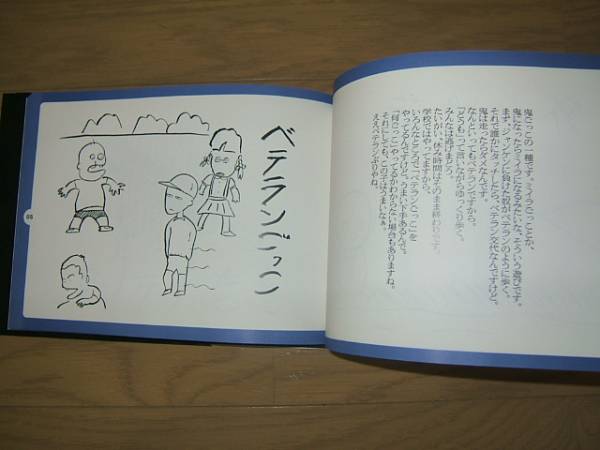 ベテランごっこ
86
鬼ごっこの一種です。ミイラごっことか、
鬼になったらミイラになるみたいな、そういう遊びです。
まず、ジャンケンに負けた奴がベテランのように歩く。
それで誰かにタッチしたら、ベテラン交代なんですけど。
なんといってもベテランですから。
鬼は走ったらダメなんです。
「どうも」って言いながらゆっくり歩く。
みんなは逃げまどう。
たいがい、休み時間はそのまま終わりです。
学校ではやってますから。
いろんなところで「ベテランごっこ」を
やってるんですけど、うまい下手あるんで。
「何ごっこ」やってるかわからない場合もありますね。
それにしても、この子はうまいなぁ。
ええベテランぶりやね。